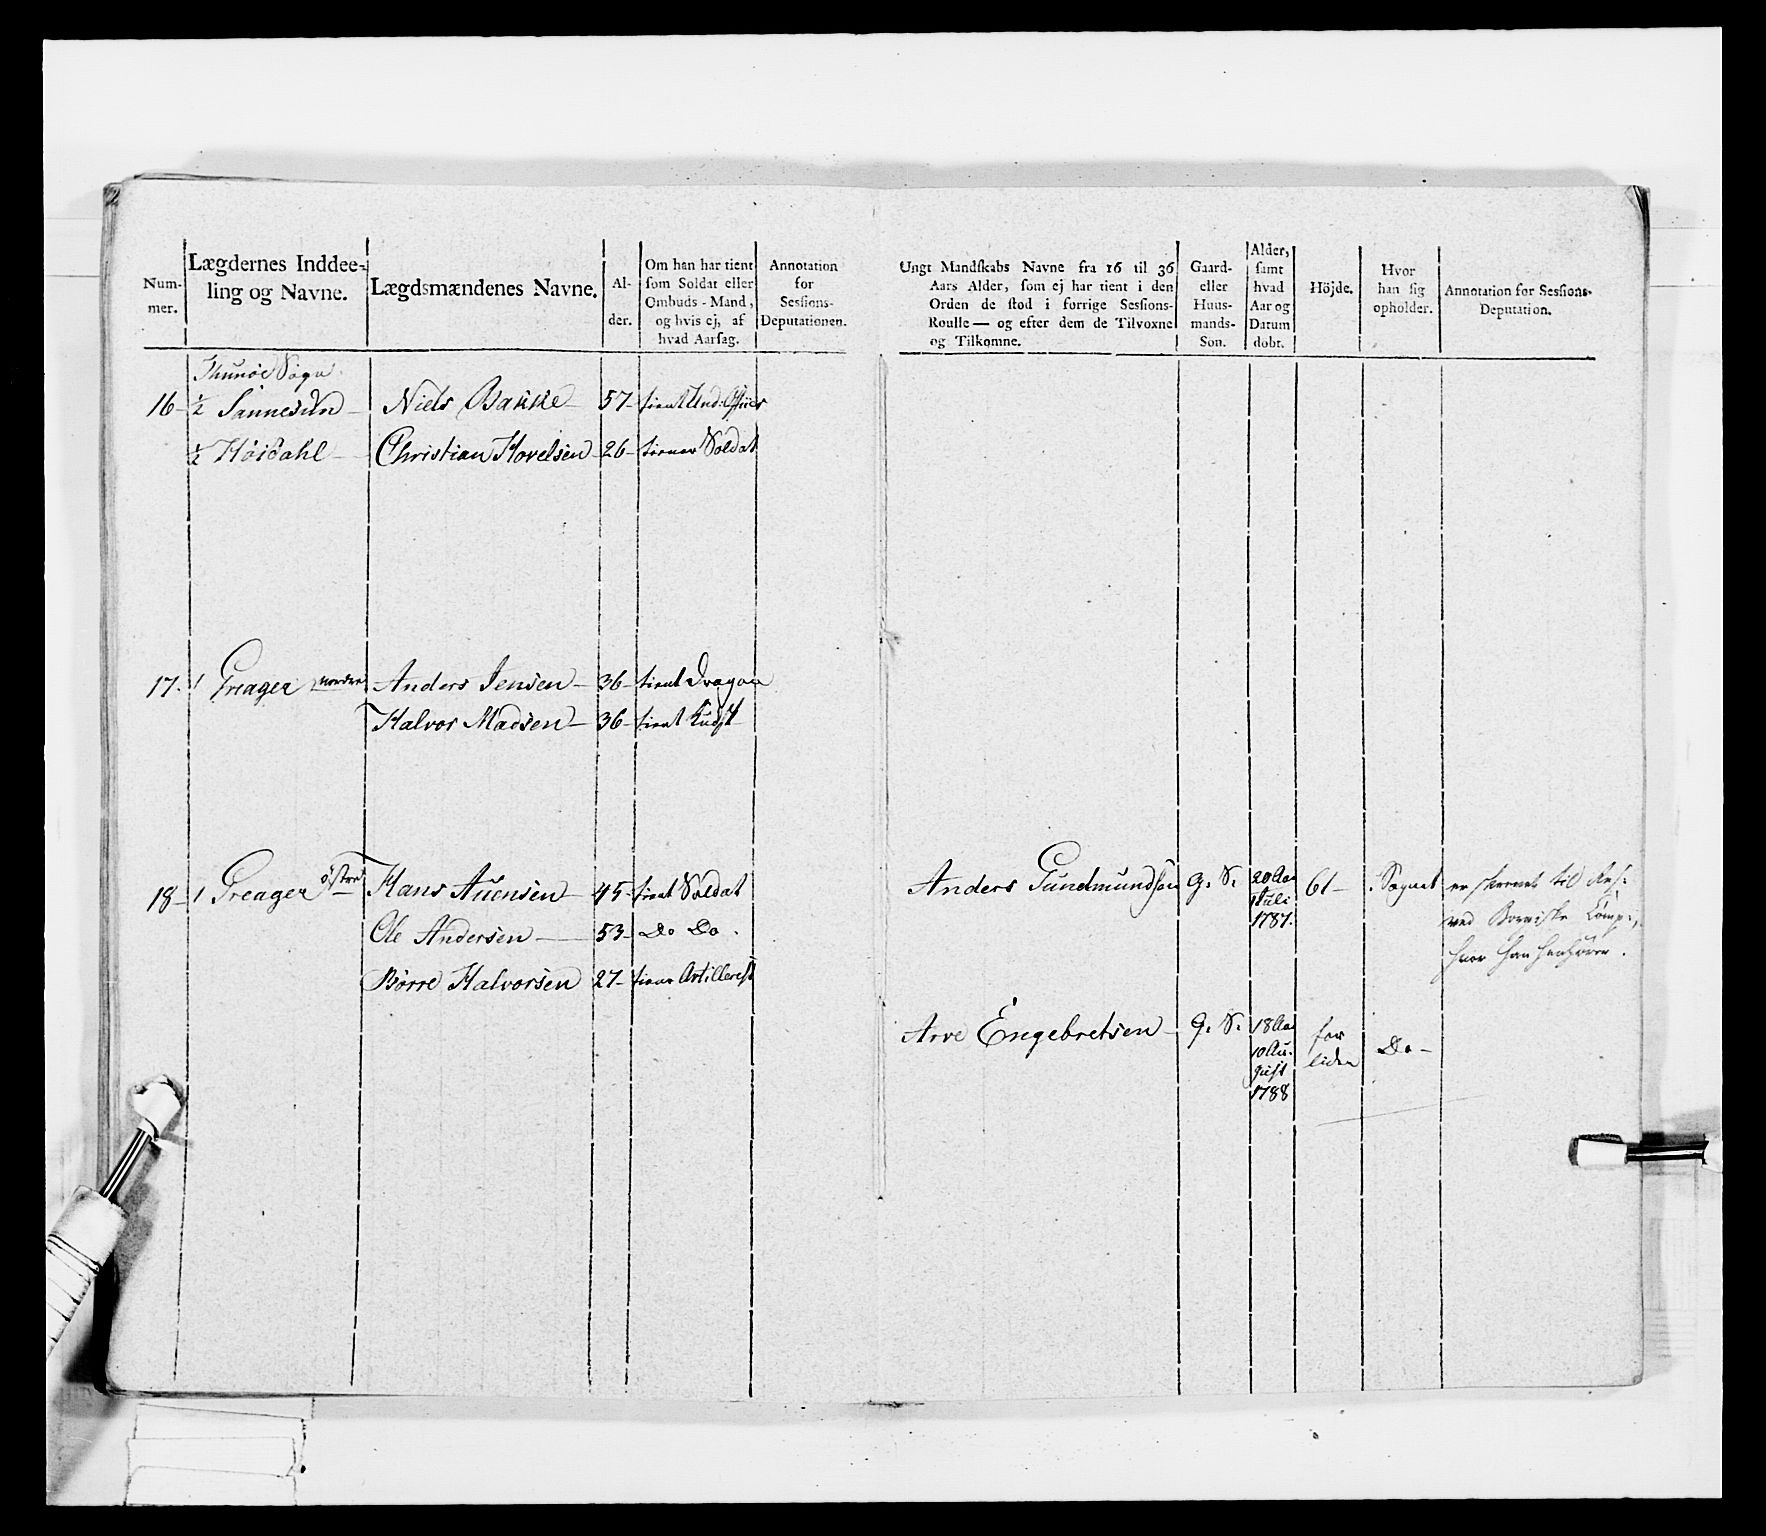 Num-
mer.
Lægdernes Inddee-
ling og Navne.
Lægdsmændenes Navne.
Al-
der.
Om han har tient
som Soldat eller
Ombuds-Mand,
og hvis ej, af
hvad Aarsag.
Annotation
for
Sessions-
Deputationen.
Ungt Mandskabs Navne fra 16 til 36
Aars Alder, som ej har tient i den
Orden de stod i forrige Sessions-
Roulle — og efter dem de Tilvoxne
og Tilkomne.
Gaard-
eller
Huus-
mands-
Son.
Alder,
samt
hvad
Aar og
Datum
dobt.
Höjde.
Hvor
han sig
opholder.
Annotation for Sessions-
Deputation.
Thunøe Sogn
16 – ½ Sannesund – Niels Bakke – 57 – tient Und: Officer
½ Høidahl – Christian Hovelsen 26 – tiener Soldat
17. 1 Greager nordre Anders Jensen – 36 – tient Dragon
Halvor Madsen – 36 – tient
18 – 1 Greager østre Hans Auensen – 45 – tient Soldat
Ole Andersen – 53 – Do Do.
Børre Halvorsen 27 – tiener Artillerist
Anders Gundmundsen G. S. 20 Aar
Juli
1787.
61 – i Sognet er til
ved Comp:,
hvor han henhører.
Arve Engebretsen – G. S. 18 Aar
10 Au-
gust
1788
for
liden
Do –